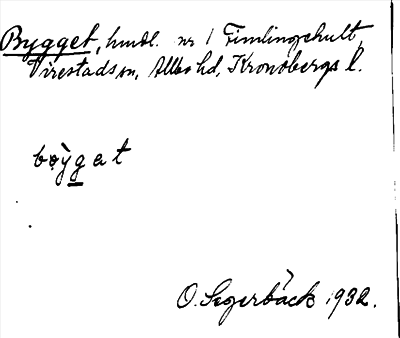 Bygget, hmdl. nr 1 Timlingehult,
Virestads sn, Allbo hd, Kronobergs l.
bøỳgat
O. Segerbäck 1932.